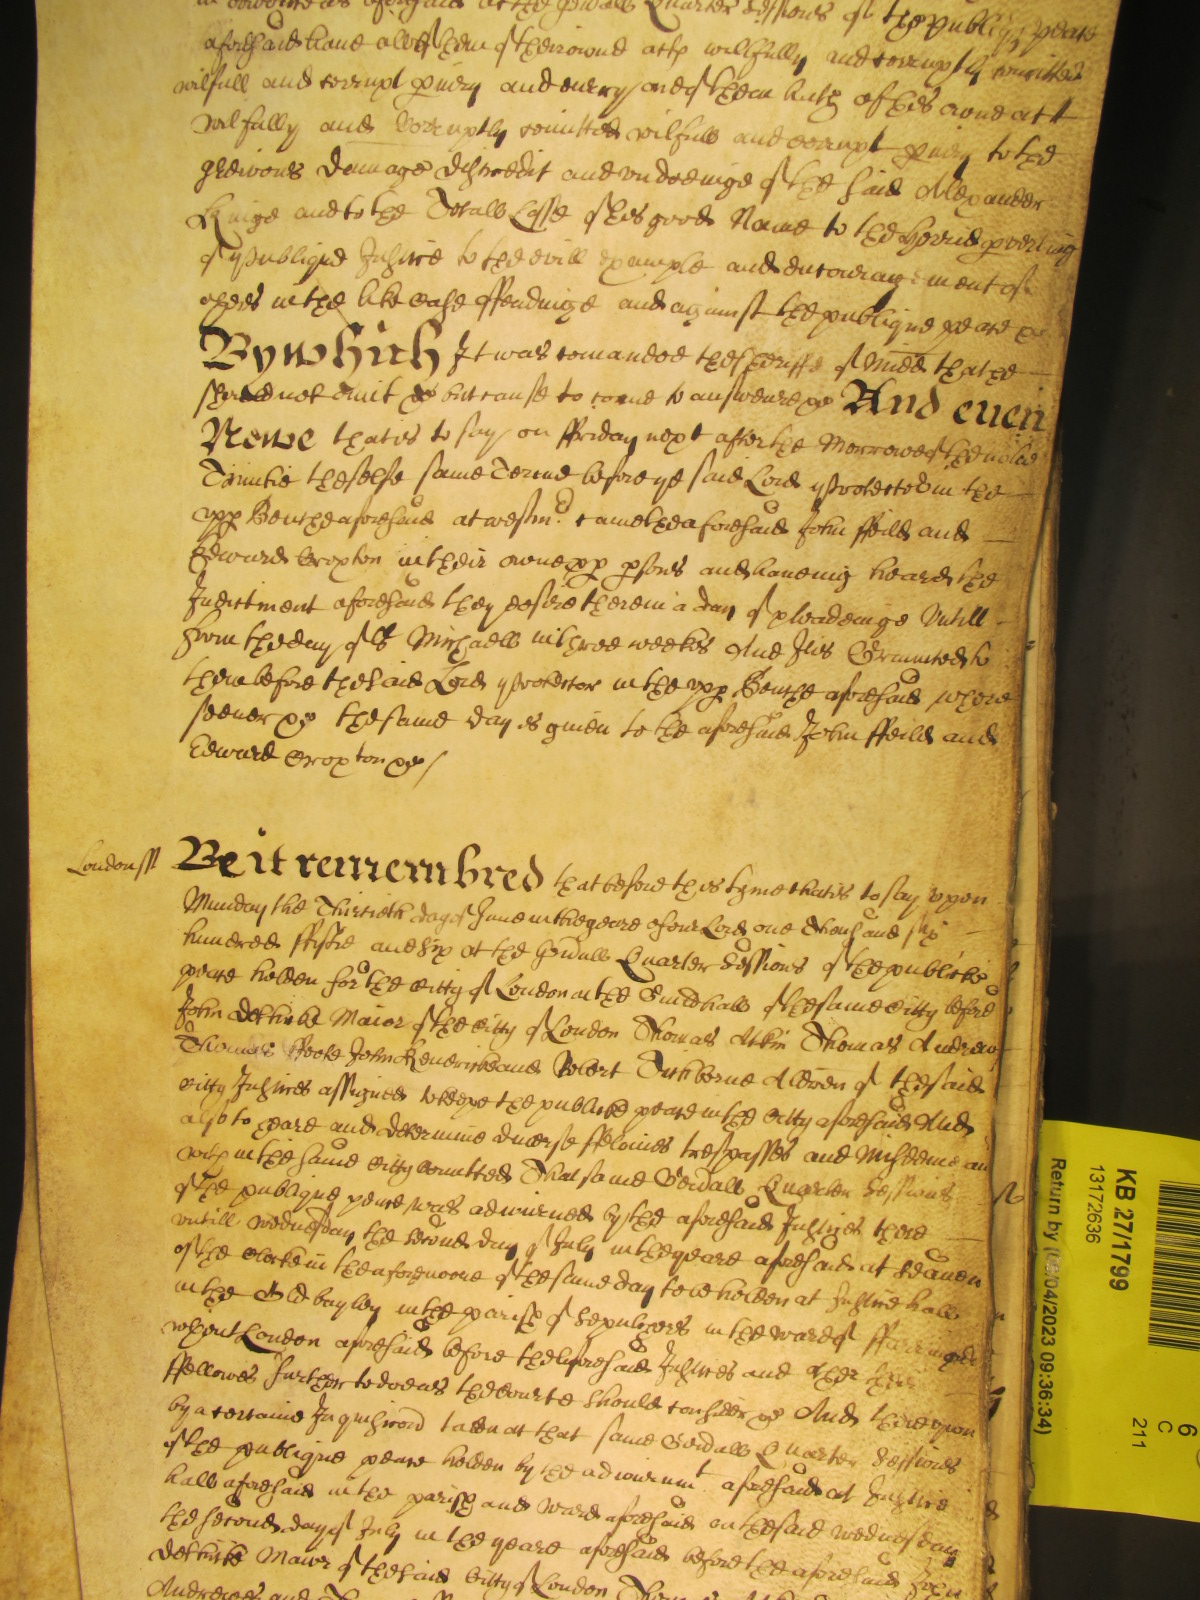 aforesaid haue all of them of their owne acts willfully and corruptly comitted
wilfull and corrupt p'iury and euery one of them hath of his owne act
wilfully and Corruptly comitted wilfull and corrupt p'iury to the
greivous damage discredit and vndoeinge of the said Alexander
Kinge and to the Totall Losse of his good Name to the
of publique Justice to the evill example and encouragement of
others in the like case offendinge and against the publique peace &c
By which It was comanded the Sheriffe of Midd that he
should not omit &c but cause to come to answere &c And euen
Nowe that is to say on ffriday next after the Morrowe of the holie
Trinitie the selfe same Terme before ye said Lord Protector in the
vpp Benche aforesaid at westm'. came the aforesaid John ffeild and
Edward Croxton in their owne pp p'sons and haueing heard the
Indictment aforesaid they desire therein a day of pleadeinge Vntill
from the day of St Michaell in three weekes And It is Graunted to
them before the said Lord Protector in the vpp Benche aforesaid where
soeuer &c the same day is giuen to the aforesaid John ffeild and
Edward Croxton &c/
London ss Be it remembred that before this tyme that is to say vpon
Munday the Thirtieth day of June in the yeare of our Lord one thousand six
hundred ffiftie and six at the Gen'all Quarter Sessions of the publicke
peace holden for the Citty of London in the Guildhall of the same Citty before
John Dethicke Maior of the Citty of London Thomas Atkin Thomas Andrewes
Thomas ffoote John Kendricke and Robert Titchborne Aldren of the said
Citty Justices assigned to keepe the publicke peace in the Citty aforesaid And
also to heare and determine diuerse ffelonies trespasses and Misdemean
within the same Citty comitted That same Gen'all Quarter Sessions
of the publique peace was adiourned by the aforesaid Justices there
vntill wednesday the second day of July in the yeare aforesaid at seauen
of the Clocke in the aforenoone of the same day to be holden at Justice hall
in the Old bayley in the parish of Sepulchers in the ward of ffarringdon
without London aforesaid before the aforesaid Justices and other their
ffellowes further to doe as the Courte should consider &c And therevpon
by a certaine Inquisicion taken at that same Gen'all Quarter Sessions
of the publique peace holden by the adiournmt aforesaid at Justice
hall aforesaid in the parish and Ward aforesaid on the said wednesday
the second day of July in the yeare aforesaid before the aforesaid John
Dethicke Maior of the said Citty of London
Andrewes and
KB 27/1799
13172636
Return by (04/2023 09:36:34)
6
C
211